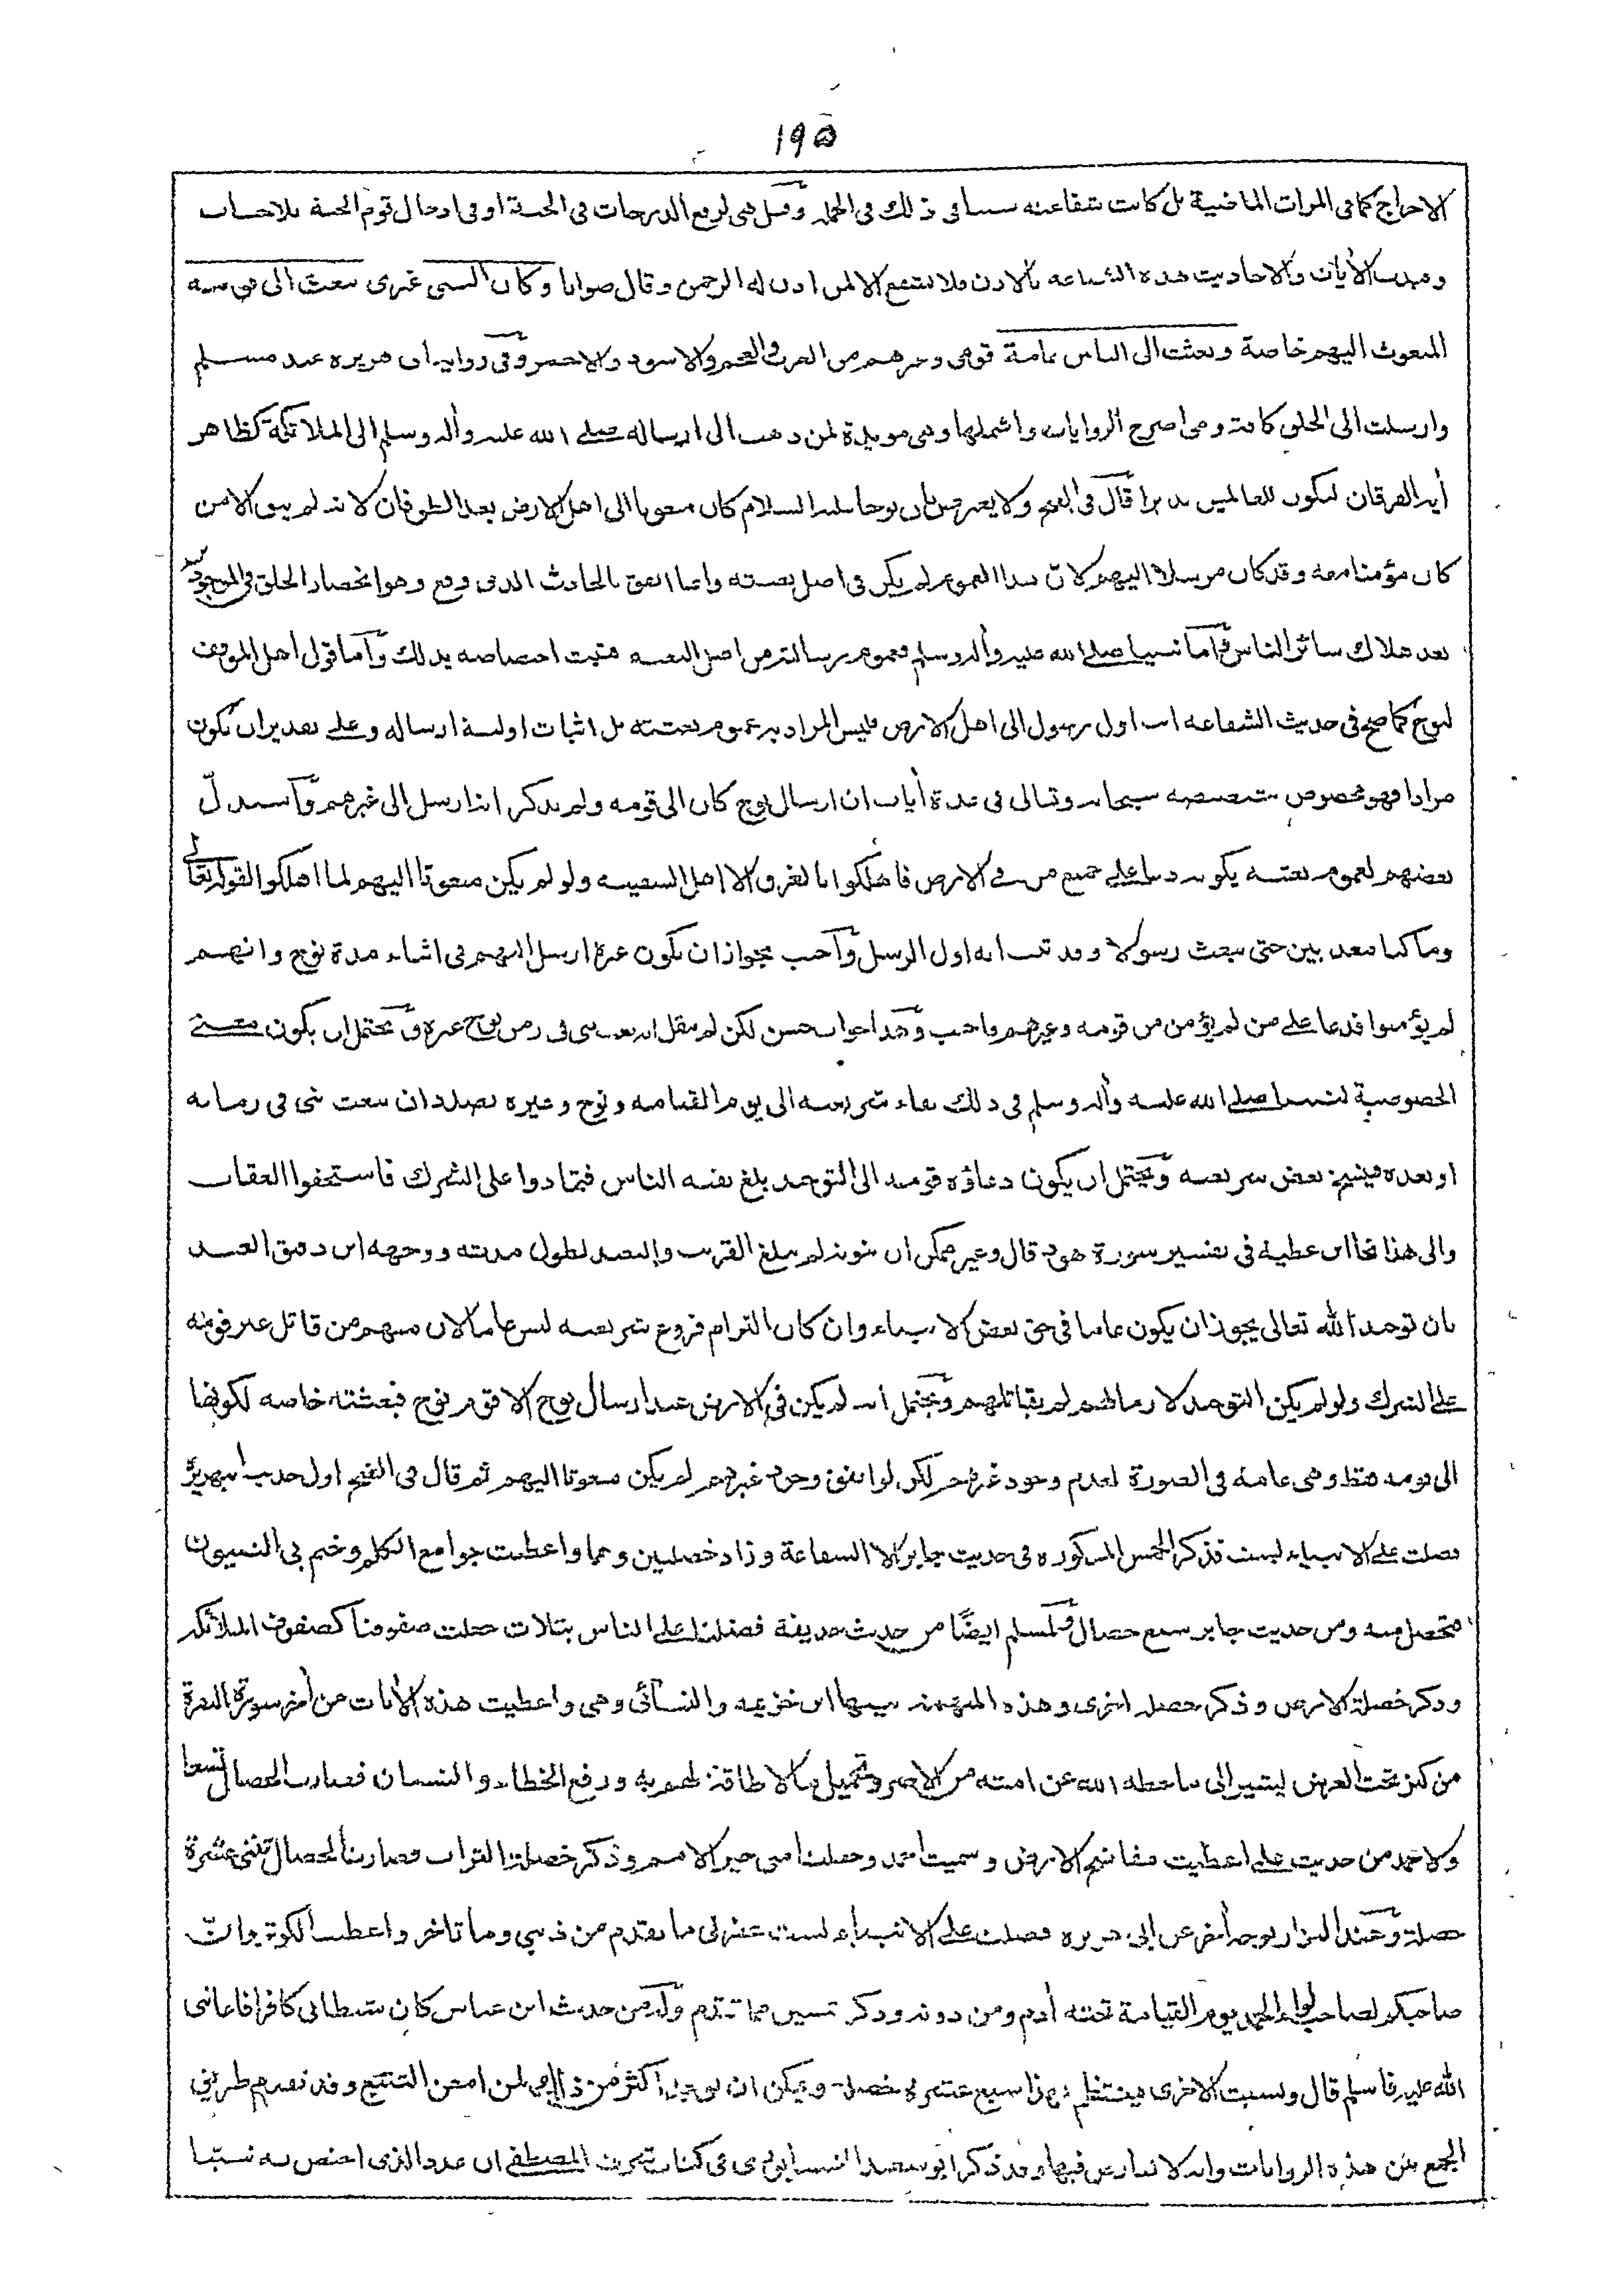 ١٩٥
الاخراج كما فى المرات الماضية بل كانت شفاعته سببا فى ذلك فى الجملة وقيل هى لرفع الدرجات فى الجنة او فى ادخال قوم الجنة بلا حساب
الآيات والاحاديث هذه الشفاعه بالاذن فلا تنفع الا لمن اذن له الرحمن وقال صوابا وكان النبى غيرى يبعث الى قومه
المبعوث اليهم خاصة وبعثت الى الناس عامة قومى وغيرهم من العرب والعجم والاسود والاحمر وفى رواية ابى هريره عند مسلم
وارسلت الى الخلق كافة وهى اصرح الروايات واشملها وهى مويدة لمن ذهب الى ارساله صلى الله عليه وآله وسلم الى الملائكة كظاهر
آية الفرقان ليكون للعالمين نذيرا قال فى الفتح ولا يعترض بان نوحا عليه السلام كان مبعوثا الى اهل الارض بعد الطوفان لانه لم يبق الا من
كان مؤمنا معه وقد كان مرسلا اليهم لان هذا العموم لم يكن فى اصل بعثته وانما اتفق بالحادث الذى وقع وهو انحصار الخلق فى الموجودين
بعد هلاك سائر الناس فاما نبينا صلى الله عليه وآله وسلم فعموم رسالته من اصل البعثه فثبت اختصاصه بذلك واما قول اهل الموقف
لنوح كما صح فى حديث الشفاعه انت اول رسول الى اهل الارض فليس المراد به عموم بعثته بل اثبات اولية ارساله وعلى تقدير ان يكون
مرادا فهو مخصوص بتنصيصه سبحانه وتعالى فى عدة آيات ان ارسال نوح كان الى قومه ولم يذكر انه ارسل الى غيرهم واستدل
بعضهم لعموم بعثته بكونه دعا على جميع من فى الارض فاهلكوا بالغرق الا اهل السفينه ولو لم يكن مبعوثا اليهم لما اهلكوا لقوله تعالى
وما كنا معذبين حتى نبعث رسولا وقد ثبت انه اول الرسل واجيب بجواز ان يكون غيره ارسل اليهم فى اثناء مدة نوح وانهم
لم يؤمنوا فدعا على من لم يؤمن من قومه وغيرهم فاجيب وهذا جواب حسن لكن لم ينقل انه نبى فى زمن نوح غيره ويحتمل ان يكون معنى
الخصوصية لنبينا صلى الله عليه وآله وسلم فى ذلك بقاء شريعته الى يوم القيامه ونوح وغيره بصدد ان يبعث نبى فى زمانه
او بعده فينسخ بعض شريعته ويحتمل ان يكون دعاؤه قومه الى التوحيد بلغ بقيه الناس فتمادوا على الشرك فاستحقوا العقاب
والى هذا نحا ابن عطية فى تفسير سورة هود قال وغير ممكن ان نبوته لم تبلغ القريب والبعيد لطول مدته ووجهه ابن دقيق العيد
بان توحيد الله تعالى يجوز ان يكون عاما فى حق بعض الانبياء وان كان التزام فروع شريعته ليس عاما لان منهم من قاتل غير قومه
على الشرك ولو لم يكن التوحيد لازما لهم لم يقاتلهم ويحتمل انه لم يكن فى الارض عند ارسال نوح الا قوم نوح فبعثته خاصه لكونها
الى قومه فقط وهى عامة فى الصورة لعدم وجود غيرهم لكن لو اتفق وجود غيرهم لم يكن مبعوثا اليهم ثم قال فى الفتح اول حديث ابى هريرة
فضلت على الانبياء بست فذكر الخمس المذكوره فى حديث جابر الا الشفاعة وزاد خصلتين وهما واعطيت جوامع الكلم وختم بى النبيون
فتحصل منه ومن حديث جابر سبع خصال ولمسلم ايضًا من حديث حذيفة فضلنا على الناس بثلاث جعلت صفوفنا كصفوف الملائكة
وذكر خصلة الارض وذكر خصلة اخرى وهذه المبهمة بينها ابن خزيمه والنسائى وهى واعطيت هذه الآيات من آخر سورة البقرة
من كنز تحت العرش ليشير الى ما حطه الله عن امته من الاصر وتحميل ما لا طاقة لهم به ورفع الخطاء والنسيان فصارت الخصال تسعا
ولاحمد من حديث على اعطيت مفاتيح الارض وسميت احمد وجعلت امتى خير الامم وذكر خصلة التراب فصارت الخصال ثنتى عشرة
خصلة وعند البزار بوجه آخر عن ابى هريره فضلت على الانبياء بست غفر لى ما تقدم من ذنبى وما تاخر واعطيت الكوثر وان
صاحبكم لصاحب لواء الحمد يوم القيامة تحته آدم ومن دونه وذكر ثنتين مما تقدم وله من حديث ابن عباس كان شيطانى كافرا فاعاننى
الله عليه فاسلم قال ونسيت الاخرى فينتظم بهذا سبع عشره خصلة ويمكن ان يوجد اكثر من ذلك لمن امعن التتبع وقد تقدم طريق
الجمع بين هذه الروايات وانه لا تعارض فيها وقد ذكر ابو سعيد النيسابورى فى كتاب شرف المصطفى ان عدد الذى اختص به نبينا